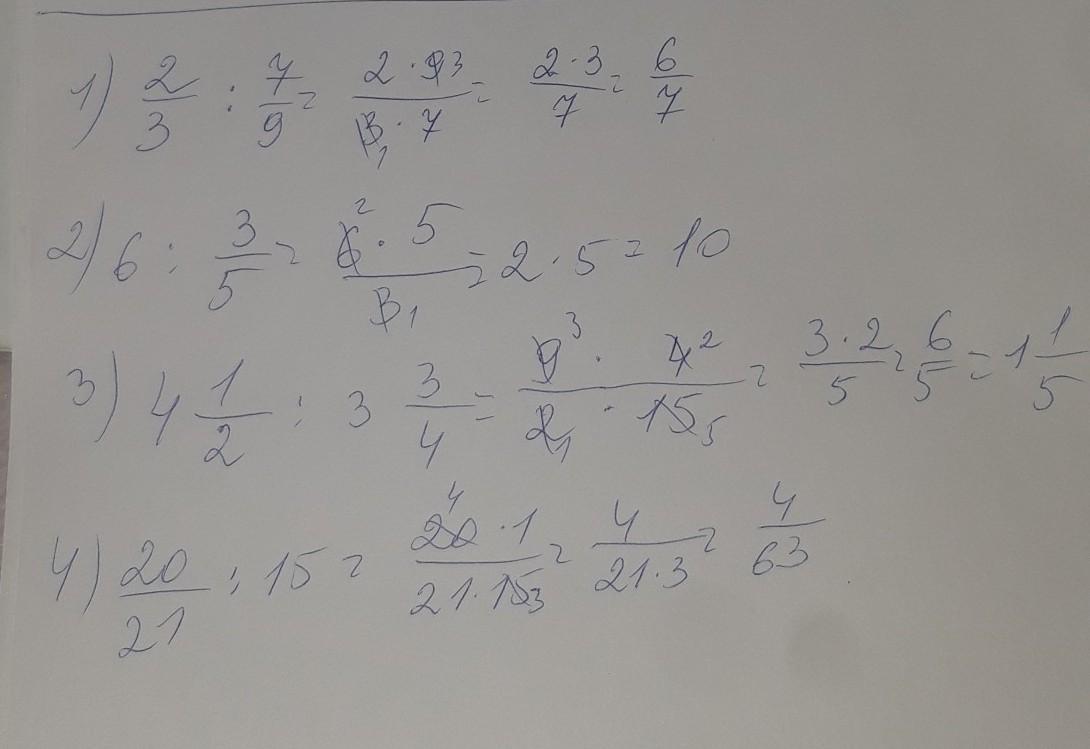 1) 2/3 : 7/9 = 2 · 9 3 / 3 1 · 7 = 2 · 3 / 7 = 6/7
2) 6 : 3/5 = 6 2 · 5 / 3 1 = 2 · 5 = 10
3) 4 1/2 : 3 3/4 = 9 3 · 4 2 / 2 1 · 15 5 = 3 · 2 / 5 = 6/5 = 1 1/5
4) 20/21 : 15 = 20 4 · 1 / 21 · 15 3 = 4 / 21 · 3 = 4/63